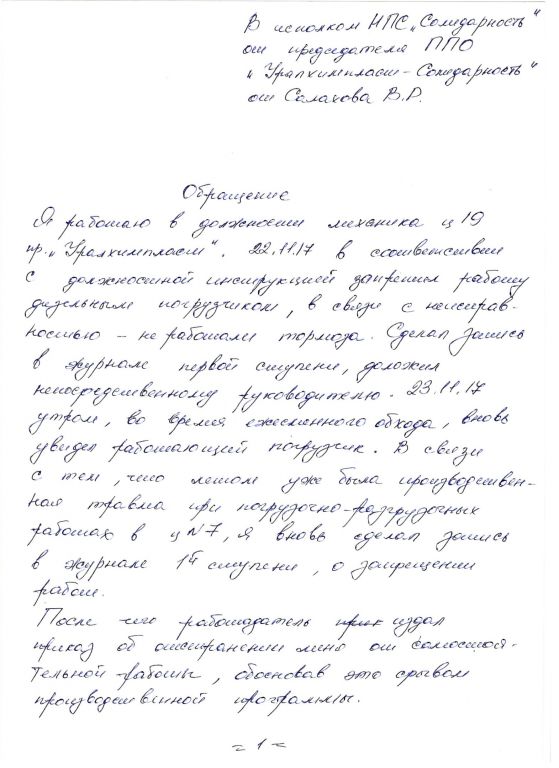 В исполком НПС „Солидарность"
от председателя ППО
„Уралхимпласт-Солидарность"
от Салахова В.Р.
Обращение
Я работаю в должности механика ц 19
пр. „Уралхимпласт". 22.11.17 в соответствии
с должностной инструкцией запретил работу
дизельным погрузчиком, в связи с неисправ-
ностью – не работали тормоза. Сделал запись
в журнале первой ступени, доложил
непосредственному руководителю. 23.11.17
утром, во время ежесменного обхода, вновь
увидел работающий погрузчик. В связи
с тем, что летом уже была производствен-
ная травма при погрузочно-разгрузочных
работах в ц N7, я вновь сделал запись
в журнале 1й ступени, о запрещении
работ.
После чего работодатель издал
приказ об отстранении меня от самостоя-
тельной работы, обосновав это срывом
производственной программы.
= 1 =